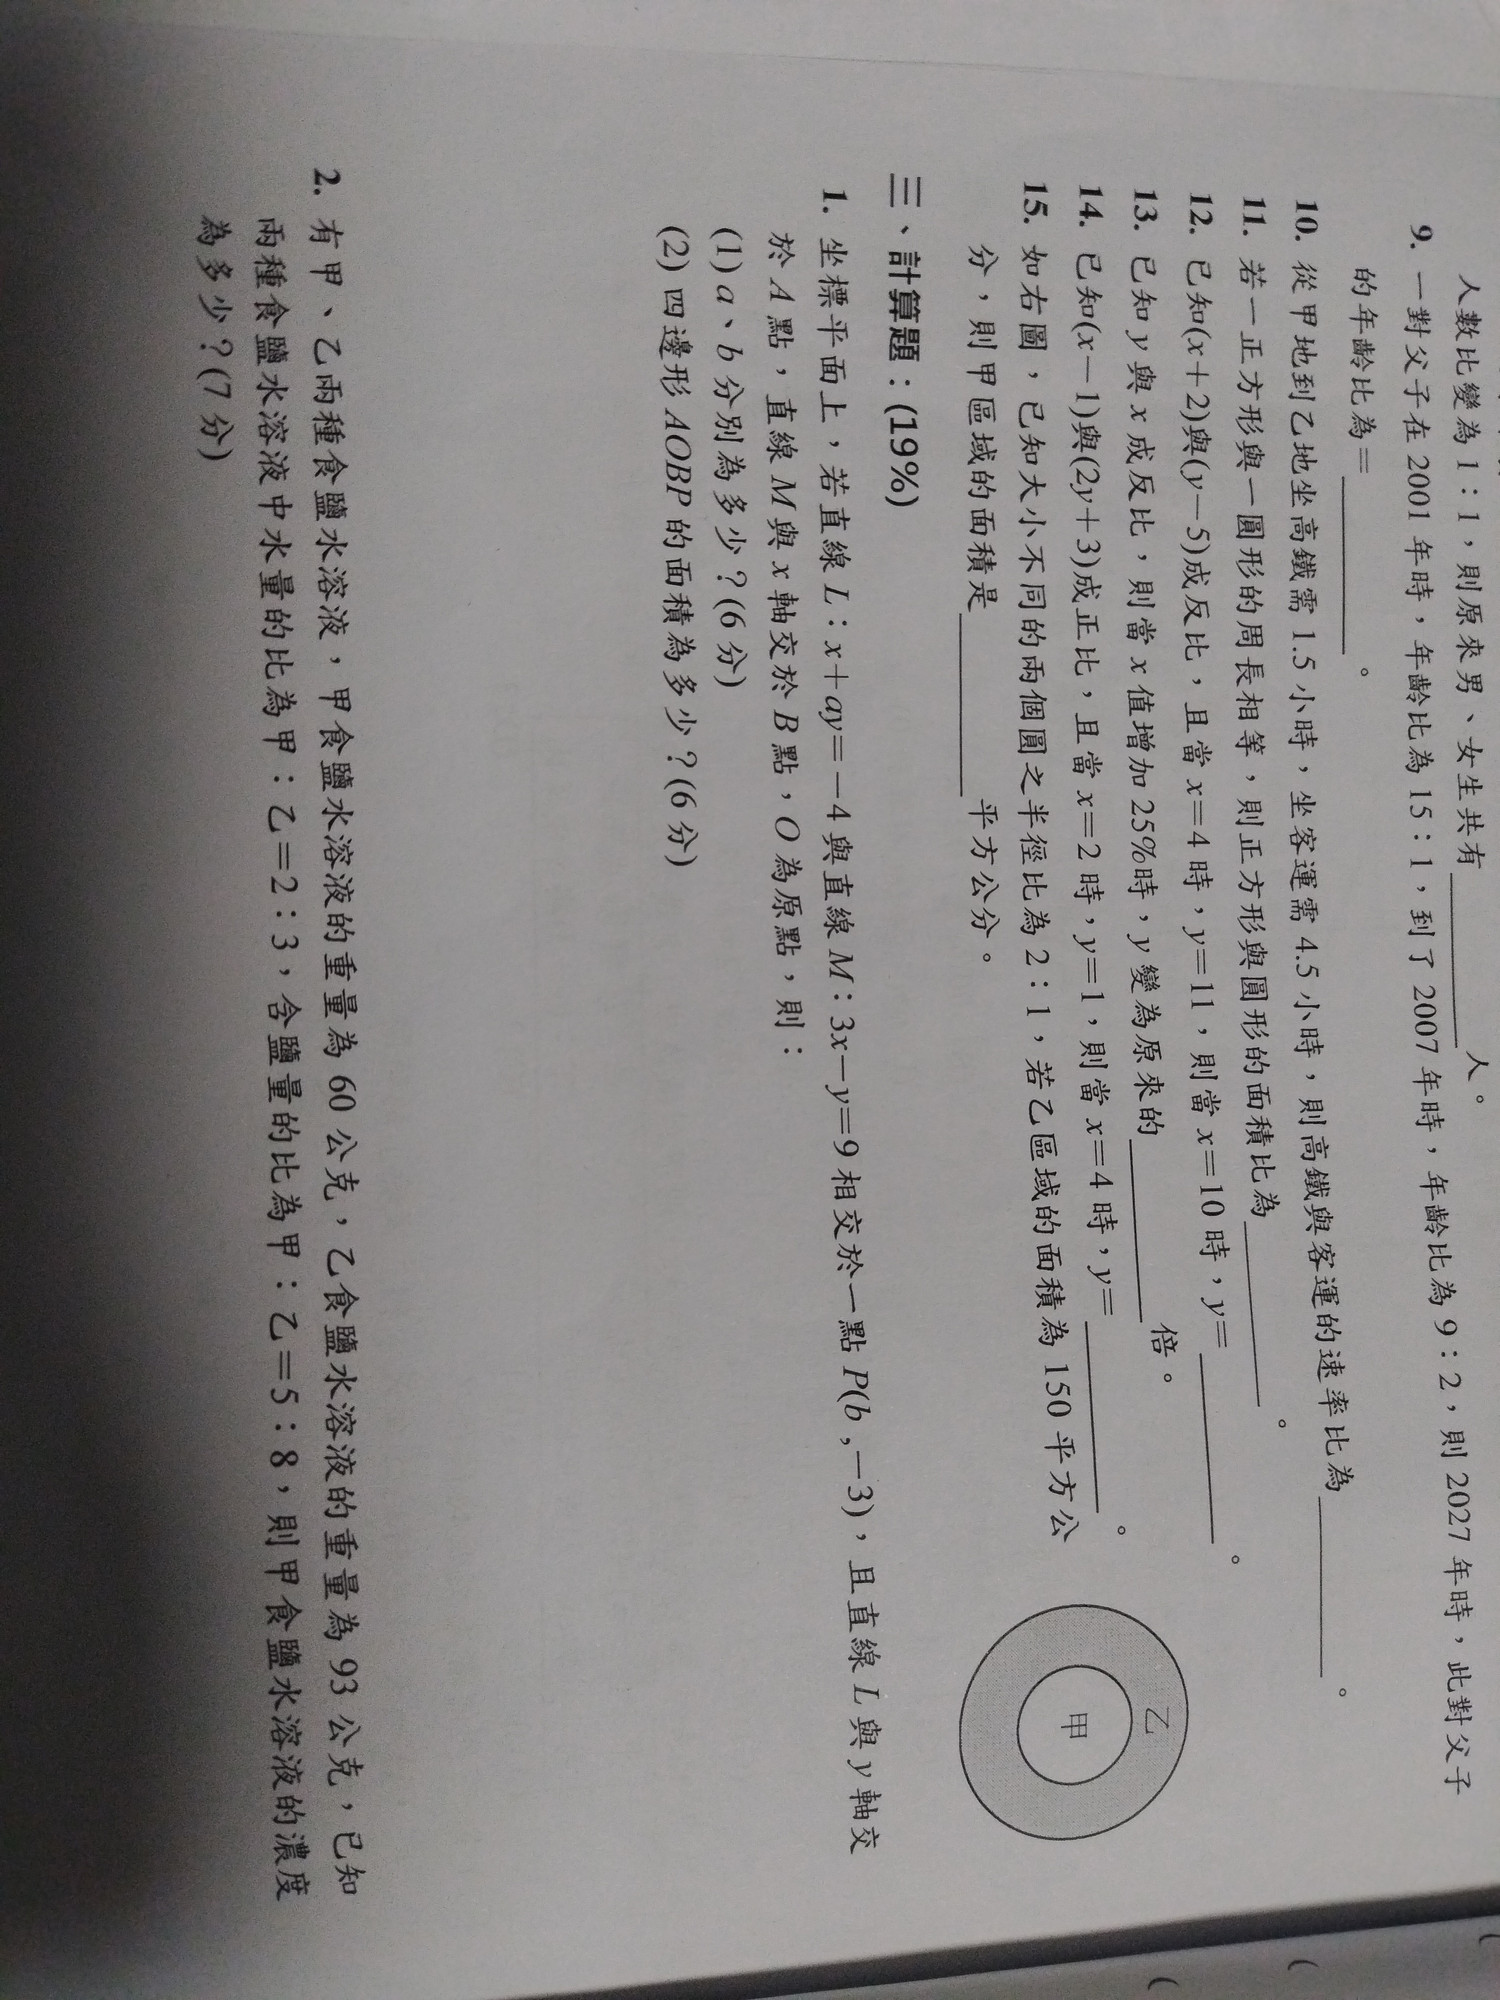 人數比變為 1：1，則原來男、女生共有＿＿＿＿人。
9. 一對父子在 2001 年時，年齡比為 15：1，到了 2007 年時，年齡比為 9：2，則 2027 年時，此對父子
的年齡比為＝＿＿＿＿。
10. 從甲地到乙地坐高鐵需 1.5 小時，坐客運需 4.5 小時，則高鐵與客運的速率比為＿＿＿＿。
11. 若一正方形與一圓形的周長相等，則正方形與圓形的面積比為＿＿＿＿。
12. 已知(x＋2)與(y－5)成反比，且當 x＝4 時，y＝11，則當 x＝10 時，y＝＿＿＿＿。
13. 已知 y 與 x 成反比，則當 x 值增加 25%時，y 變為原來的＿＿＿＿倍。
14. 已知(x－1)與(2y＋3)成正比，且當 x＝2 時，y＝1，則當 x＝4 時，y＝＿＿＿＿。
15. 如右圖，已知大小不同的兩個圓之半徑比為 2：1，若乙區域的面積為 150 平方公
分，則甲區域的面積是＿＿＿＿平方公分。
乙
甲
三、計算題：(19%)
1. 坐標平面上，若直線 L：x＋ay＝－4 與直線 M：3x－y＝9 相交於一點 P(b，－3)，且直線 L 與 y 軸交
於 A 點，直線 M 與 x 軸交於 B 點，O 為原點，則：
(1) a、b 分別為多少？(6 分)
(2) 四邊形 AOBP 的面積為多少？(6 分)
2. 有甲、乙兩種食鹽水溶液，甲食鹽水溶液的重量為 60 公克，乙食鹽水溶液的重量為 93 公克，已知
兩種食鹽水溶液中水量的比為甲：乙＝2：3，含鹽量的比為甲：乙＝5：8，則甲食鹽水溶液的濃度
為多少？(7 分)